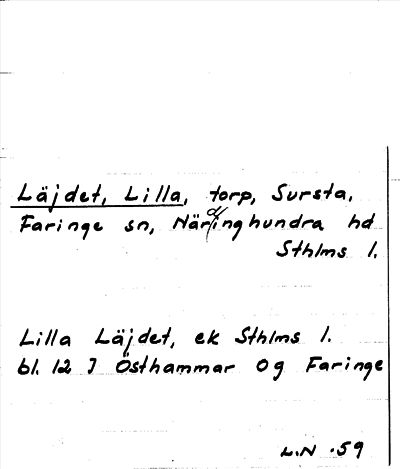 Läjdet, Lilla, torp, Sursta,
Faringe sn, Närdinghundra hd
Sthlms l.
Lilla Läjdet, ek Sthlms l.
bl. 12 J Östhammar og Faringe
L.N. 59